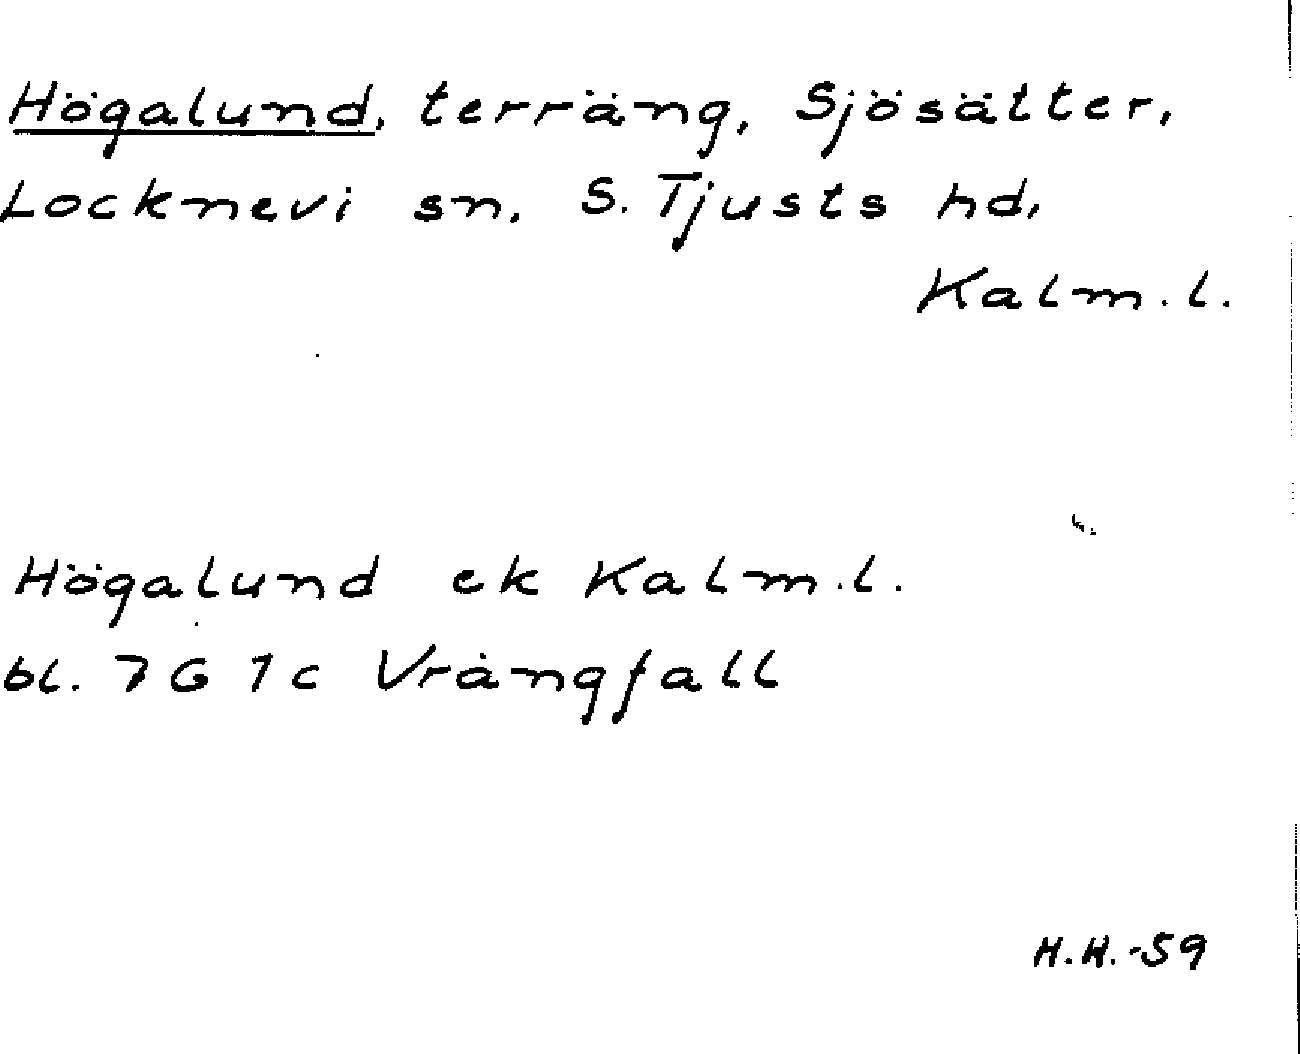 Högalund, terräng, Sjösätter,
Locknevi sn, S. Tjusts hd,
Kalm.l.
Högalund ek Kalm.l.
bl. 7 G 1c Vrångfall
H.H.-59